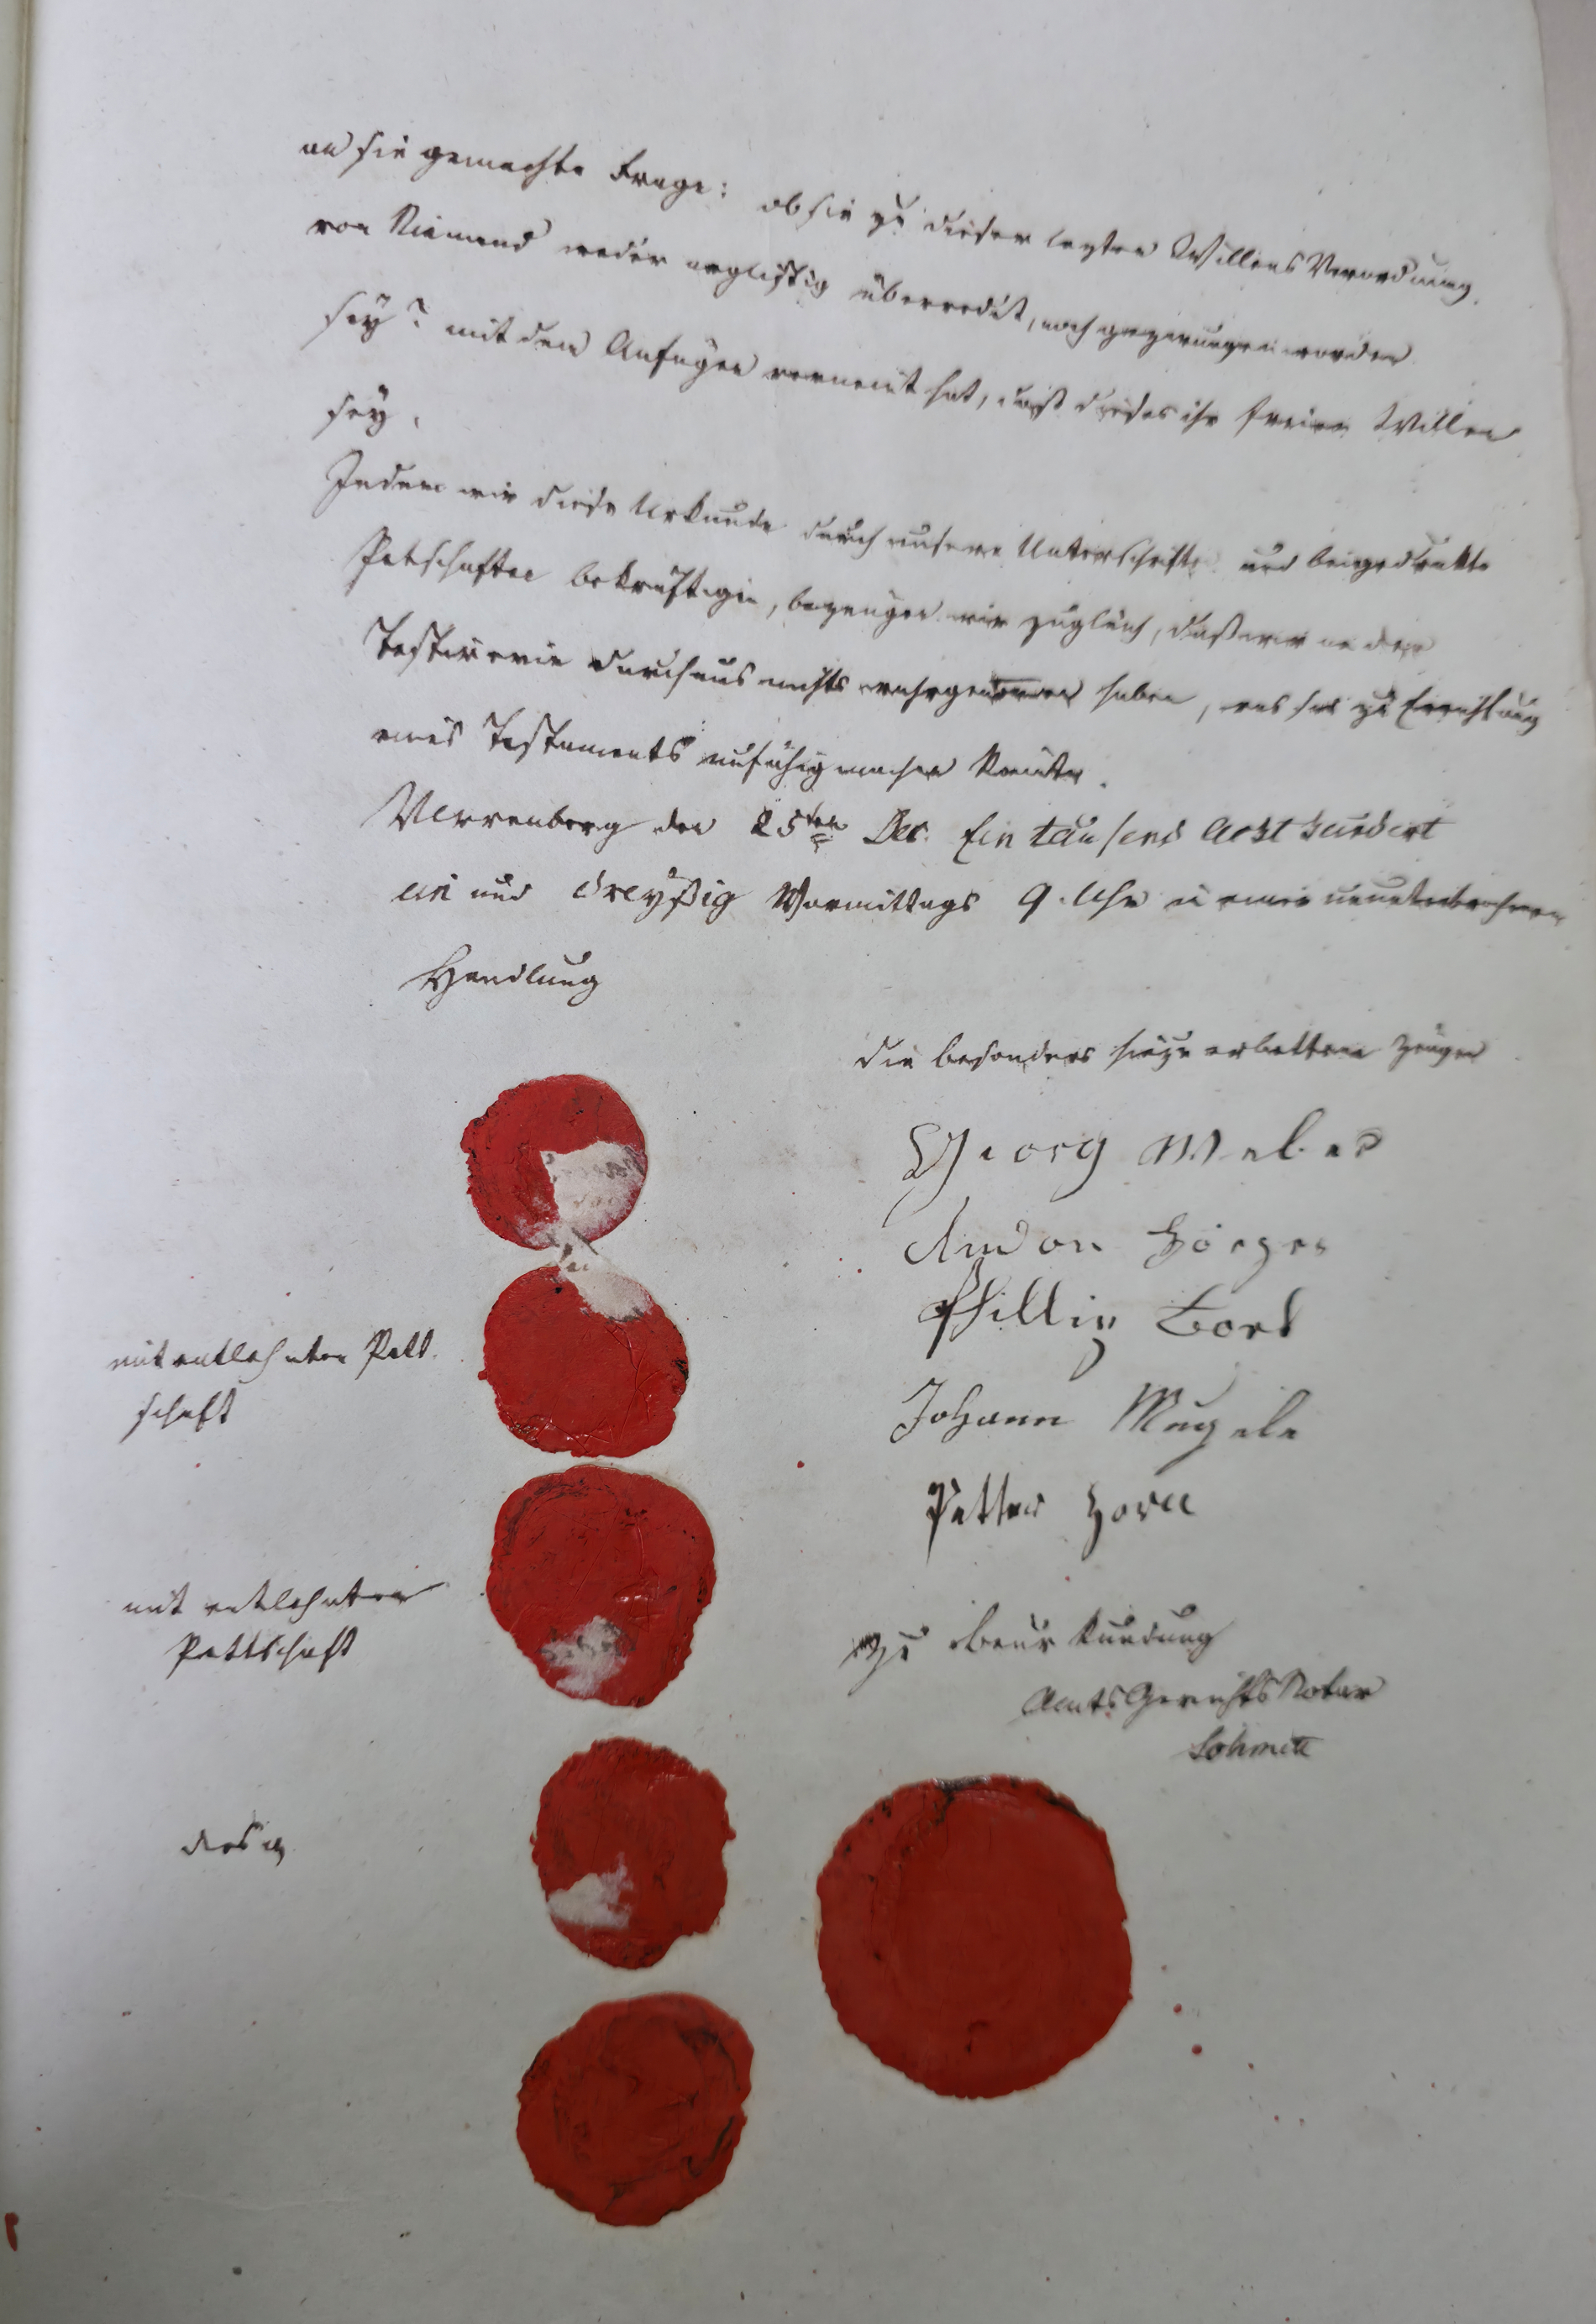 an sie gemachte Frage: ob sie zu dieser lezten Willens Verordnung
von Niemand weder arglistig überredet, noch gezwungen worden
sey? mit dem Anfügen verneint hat, daß dieses ihr freier Willen
sey.
Indem wir diese Urkunde durch unsere Unterschrift und beigedrukte
Petschaften bekräftigen, bezeugen wir zugleich, daß wir an der
Testirerin durchaus nichts wahrgenommen haben, was sie zu Errichtung
eines Testaments unfähig machen könnte.
Verrenberg den 25ten Dec. Ein tausend Acht hundert
ein und dreyßig Vormittags 9. Uhr in einer ununterbrochenen
Handlung
die besonders hiezu erbettene Zeugen
Georg Weber
Philipp
Johann Mugele
Petter Horn
mit entlehnter Pett
schaft
mit entlehnter
Pettschaft
zu Beurkundung
AmtsGerichtsNotar